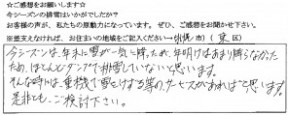 ☆ご感想をお願いします☆
今シーズンの排雪はいかがでしたか？
お客様の声が、私たちの原動力になっています。ぜひ、ご感想をお聞かせ下さい。
※差支えなければ、お住まいの地域をご記入ください→(札幌 市) ( 東 区)
今シーズンは、年末に雪が一気に降ったため、年明けはあまり降らなかった
ため、ほとんどダンプで排雪していないと思います。
そんな時は、重機で雪をけずる等のサービスがあればと思います。
是非とも、ご検討下さい。